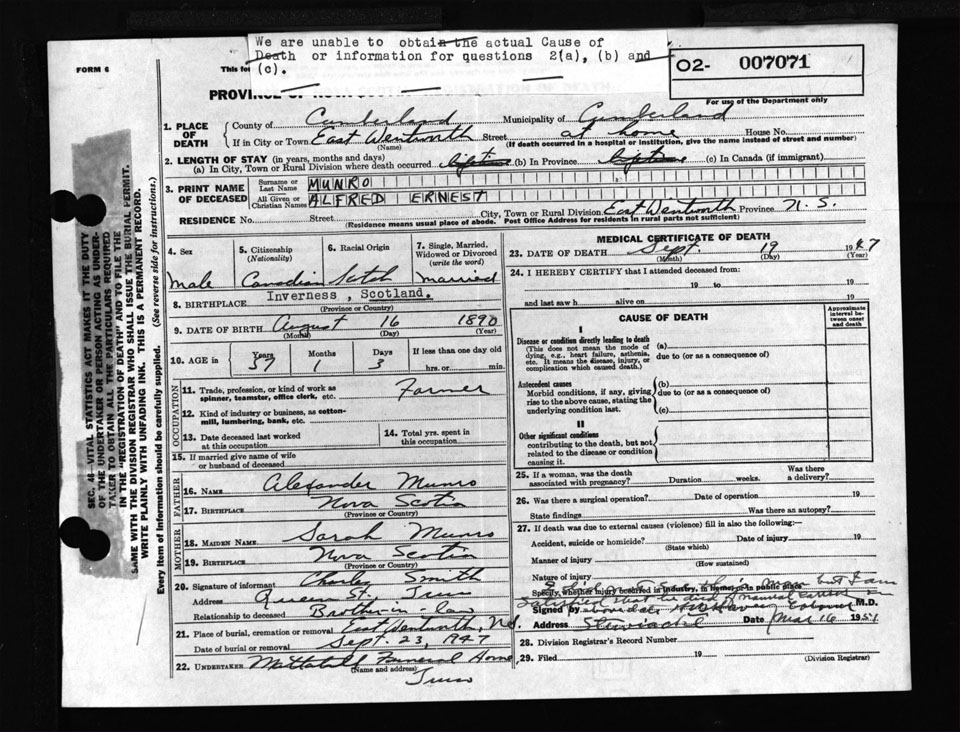 We are unable to obtain the actual Cause of
Death or information for questions 2(a), (b) and
(c).
FORM 6
This for
O2- 007071
PROVINCE OF
For use of the Department only
1. PLACE OF DEATH { County of Cumberland Municipality of Cumberland
If in City or Town East Wentworth Street at home House No.
(Name) (If death occurred in a hospital or institution, give the name instead of street and number)
2. LENGTH OF STAY (in years, months and days)
(a) In City, Town or Rural Division where death occurred lifetime (b) In Province lifetime (c) In Canada (if immigrant)
3. PRINT NAME OF DECEASED { Surname or Last Name MUNRO
All Given or Christian Names ALFRED ERNEST
RESIDENCE No. Street City, Town or Rural Division East Wentworth Province N. S.
(Residence means usual place of abode. Post Office Address for residents in rural parts not sufficient)
4. Sex Male
5. Citizenship (Nationality) Canadian
6. Racial Origin Scotch
7. Single, Married, Widowed or Divorced (write the word) married
8. BIRTHPLACE Inverness, Scotland.
(Province or Country)
9. DATE OF BIRTH August 16 1890
(Month) (Day) (Year)
10. AGE in { Years 57 Months 1 Days 3 If less than one day old
hrs. or min.
OCCUPATION
11. Trade, profession, or kind of work as spinner, teamster, office clerk, etc. Farmer
12. Kind of industry or business, as cotton-mill, lumbering, bank, etc.
13. Date deceased last worked at this occupation
14. Total yrs. spent in this occupation
15. If married give name of wife or husband of deceased
FATHER
16. NAME Alexander Munro
17. BIRTHPLACE Nova Scotia
(Province or Country)
MOTHER
18. MAIDEN NAME Sarah Munro
19. BIRTHPLACE Nova Scotia
(Province or Country)
20. Signature of informant Charles Smith
Address Queen St. Truro
Relationship to deceased Brother-in-law
21. Place of burial, cremation or removal East Wentworth, N.S.
Date of burial or removal Sept. 23, 1947
22. UNDERTAKER Mattatall Funeral Home,
(Name and address)
Truro
MEDICAL CERTIFICATE OF DEATH
23. DATE OF DEATH Sept. 19 1947
(Month) (Day) (Year)
24. I HEREBY CERTIFY that I attended deceased from:
19 to 19
and last saw h alive on 19
CAUSE OF DEATH
Approximate interval between onset and death
I
Disease or condition directly leading to death (a)
(This does not mean the mode of dying, e.g., heart failure, asthenia, etc. It means the disease, injury, or complication which caused death.)
due to (or as a consequence of)
Antecedent causes
Morbid conditions, if any, giving rise to the above cause, stating the underlying condition last.
(b)
due to (or as a consequence of)
(c)
II
Other significant conditions
contributing to the death, but not related to the disease or condition causing it.
25. If a woman, was the death associated with pregnancy? Duration weeks. Was there a delivery?
26. Was there a surgical operation? Date of operation 19
State findings Was there an autopsy?
27. If death was due to external causes (violence) fill in also the following:
Accident, suicide or homicide? Date of injury 19
(State which)
Manner of injury
(How sustained)
Nature of injury
Specify whether injury occurred in industry, in home, or in public place
but I am
satisfied that he died of natural causes
Signed by M.D.
Address Stewiacke Date Mar 16 1951
28. Division Registrar's Record Number
29. Filed 19
(Division Registrar)
SEC. 46—VITAL STATISTICS ACT MAKES IT THE DUTY
OF THE UNDERTAKER OR PERSON ACTING AS UNDER-
TAKER TO OBTAIN ALL THE PARTICULARS REQUIRED
IN THE "REGISTRATION OF DEATH" AND TO FILE THE
SAME WITH THE DIVISION REGISTRAR WHO SHALL ISSUE THE BURIAL PERMIT.
WRITE PLAINLY WITH UNFADING INK. THIS IS A PERMANENT RECORD.
Every item of Information should be carefully supplied. (See reverse side for instructions.)